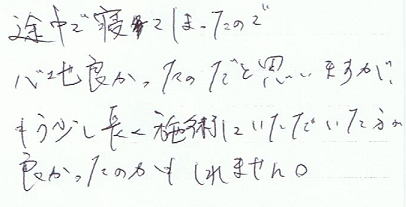 途中で寝てしまったので
心地良かったのだと思いますが、
もう少し長く施術していただいた方が
良かったのかもしれません。